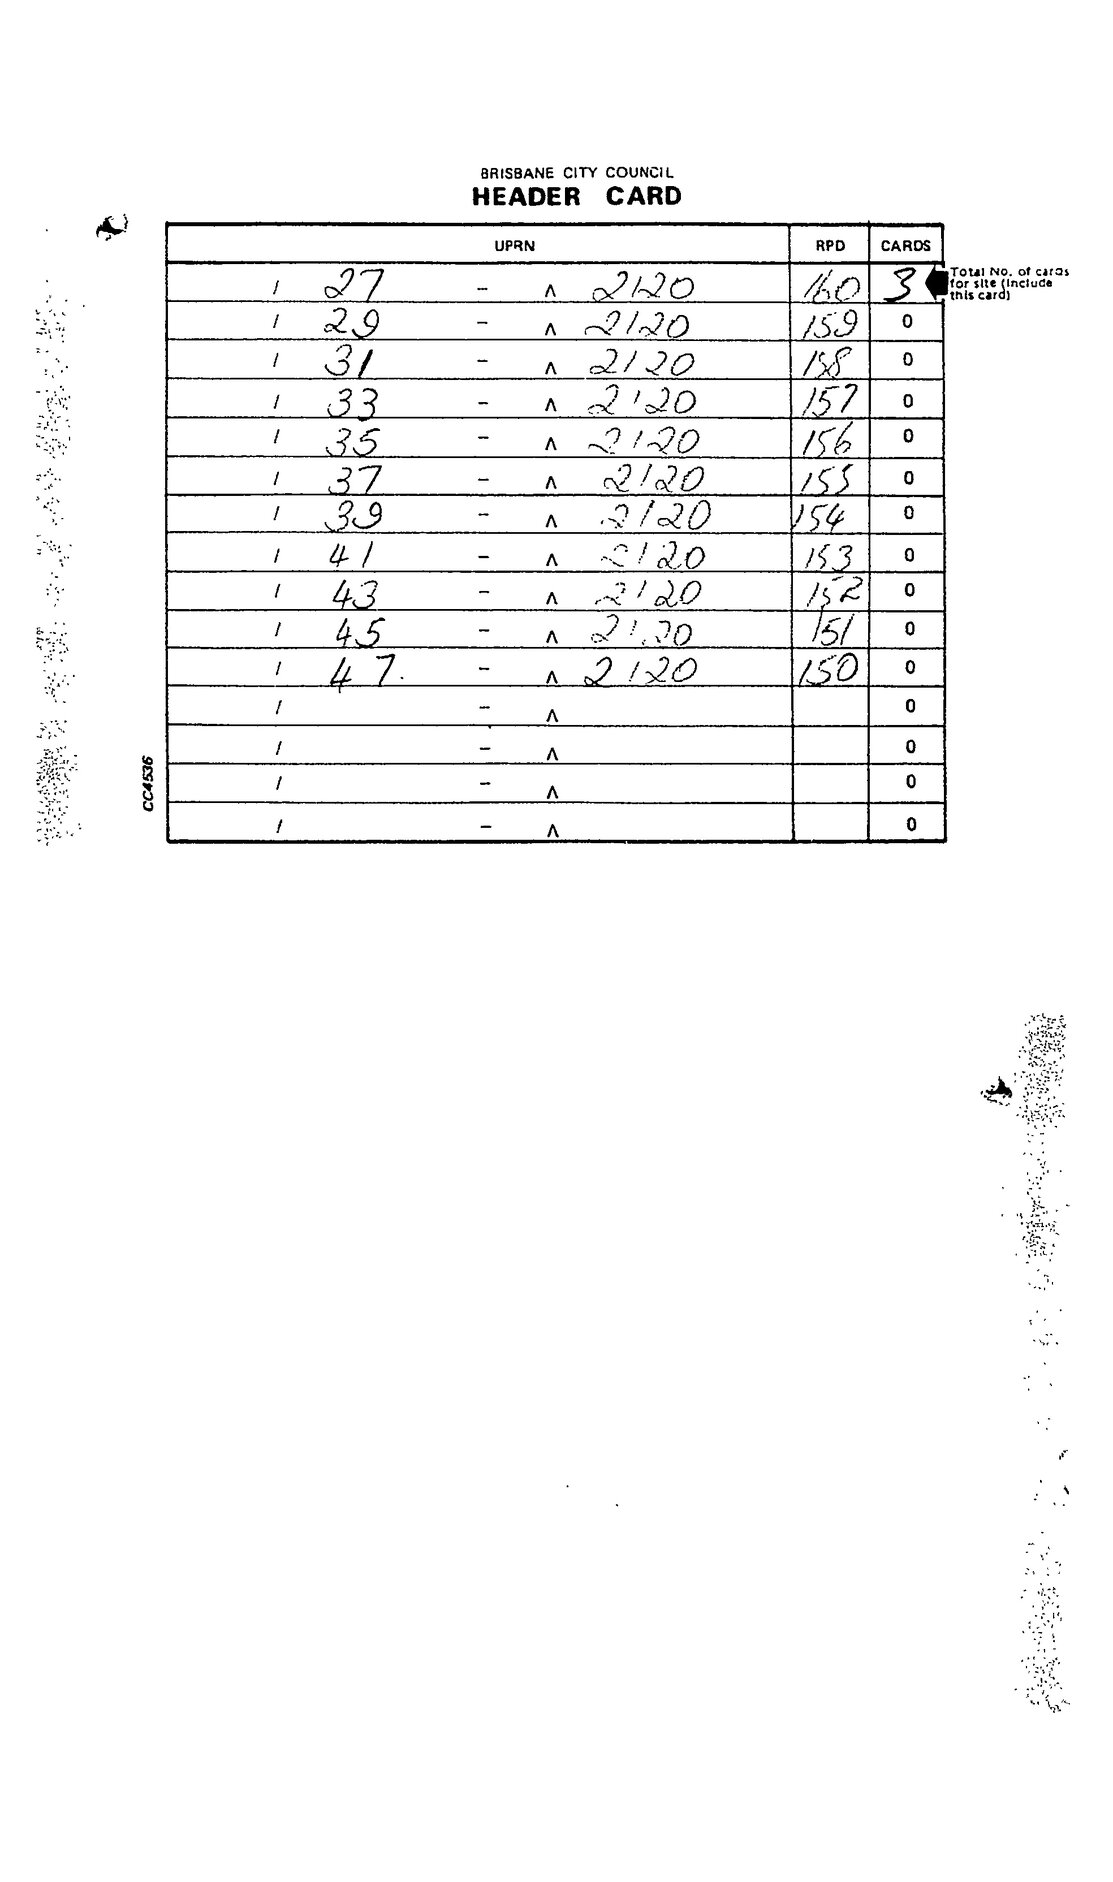 BRISBANE CITY COUNCIL
HEADER CARD
UPRN RPD CARDS
/ 27 - ʌ 2120 160 3 Total No. of cards
for site (include
this card)
/ 29 - ʌ 2120 159 0
/ 31 - ʌ 2120 158 0
/ 33 - ʌ 2120 157 0
/ 35 - ʌ 2120 156 0
/ 37 - ʌ 2120 155 0
/ 39 - ʌ 2120 154 0
/ 41 - ʌ 2120 153 0
/ 43 - ʌ 2120 152 0
/ 45 - ʌ 2120 151 0
/ 47. - ʌ 2120 150 0
/ - ʌ 0
/ - ʌ 0
/ - ʌ 0
/ - ʌ 0
CC4536